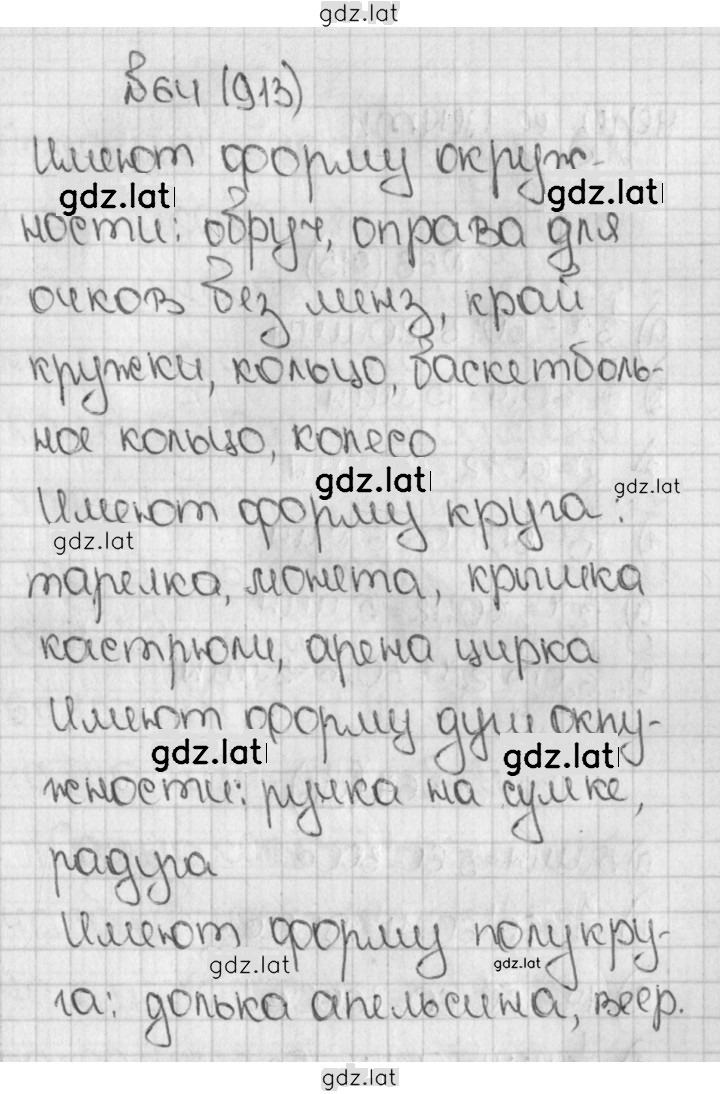 gdz.lat
В64 (913)
Имеют форму окруж-
gdz.lat gdz.lat
ности: обруч, оправа для
очков без линз, край
кружки, кольцо, баскетболь-
ное кольцо, колесо
gdz.lat gdz.lat
Имеют форму круга:
gdz.lat
тарелка, монета, крышка
кастрюли, арена цирка
Имеют форму дуги окру-
gdz.lat gdz.lat
жности: ручка на сумке,
радуга
Имеют форму полукру-
gdz.lat gdz.lat
га: долька апельсина, веер.
gdz.lat